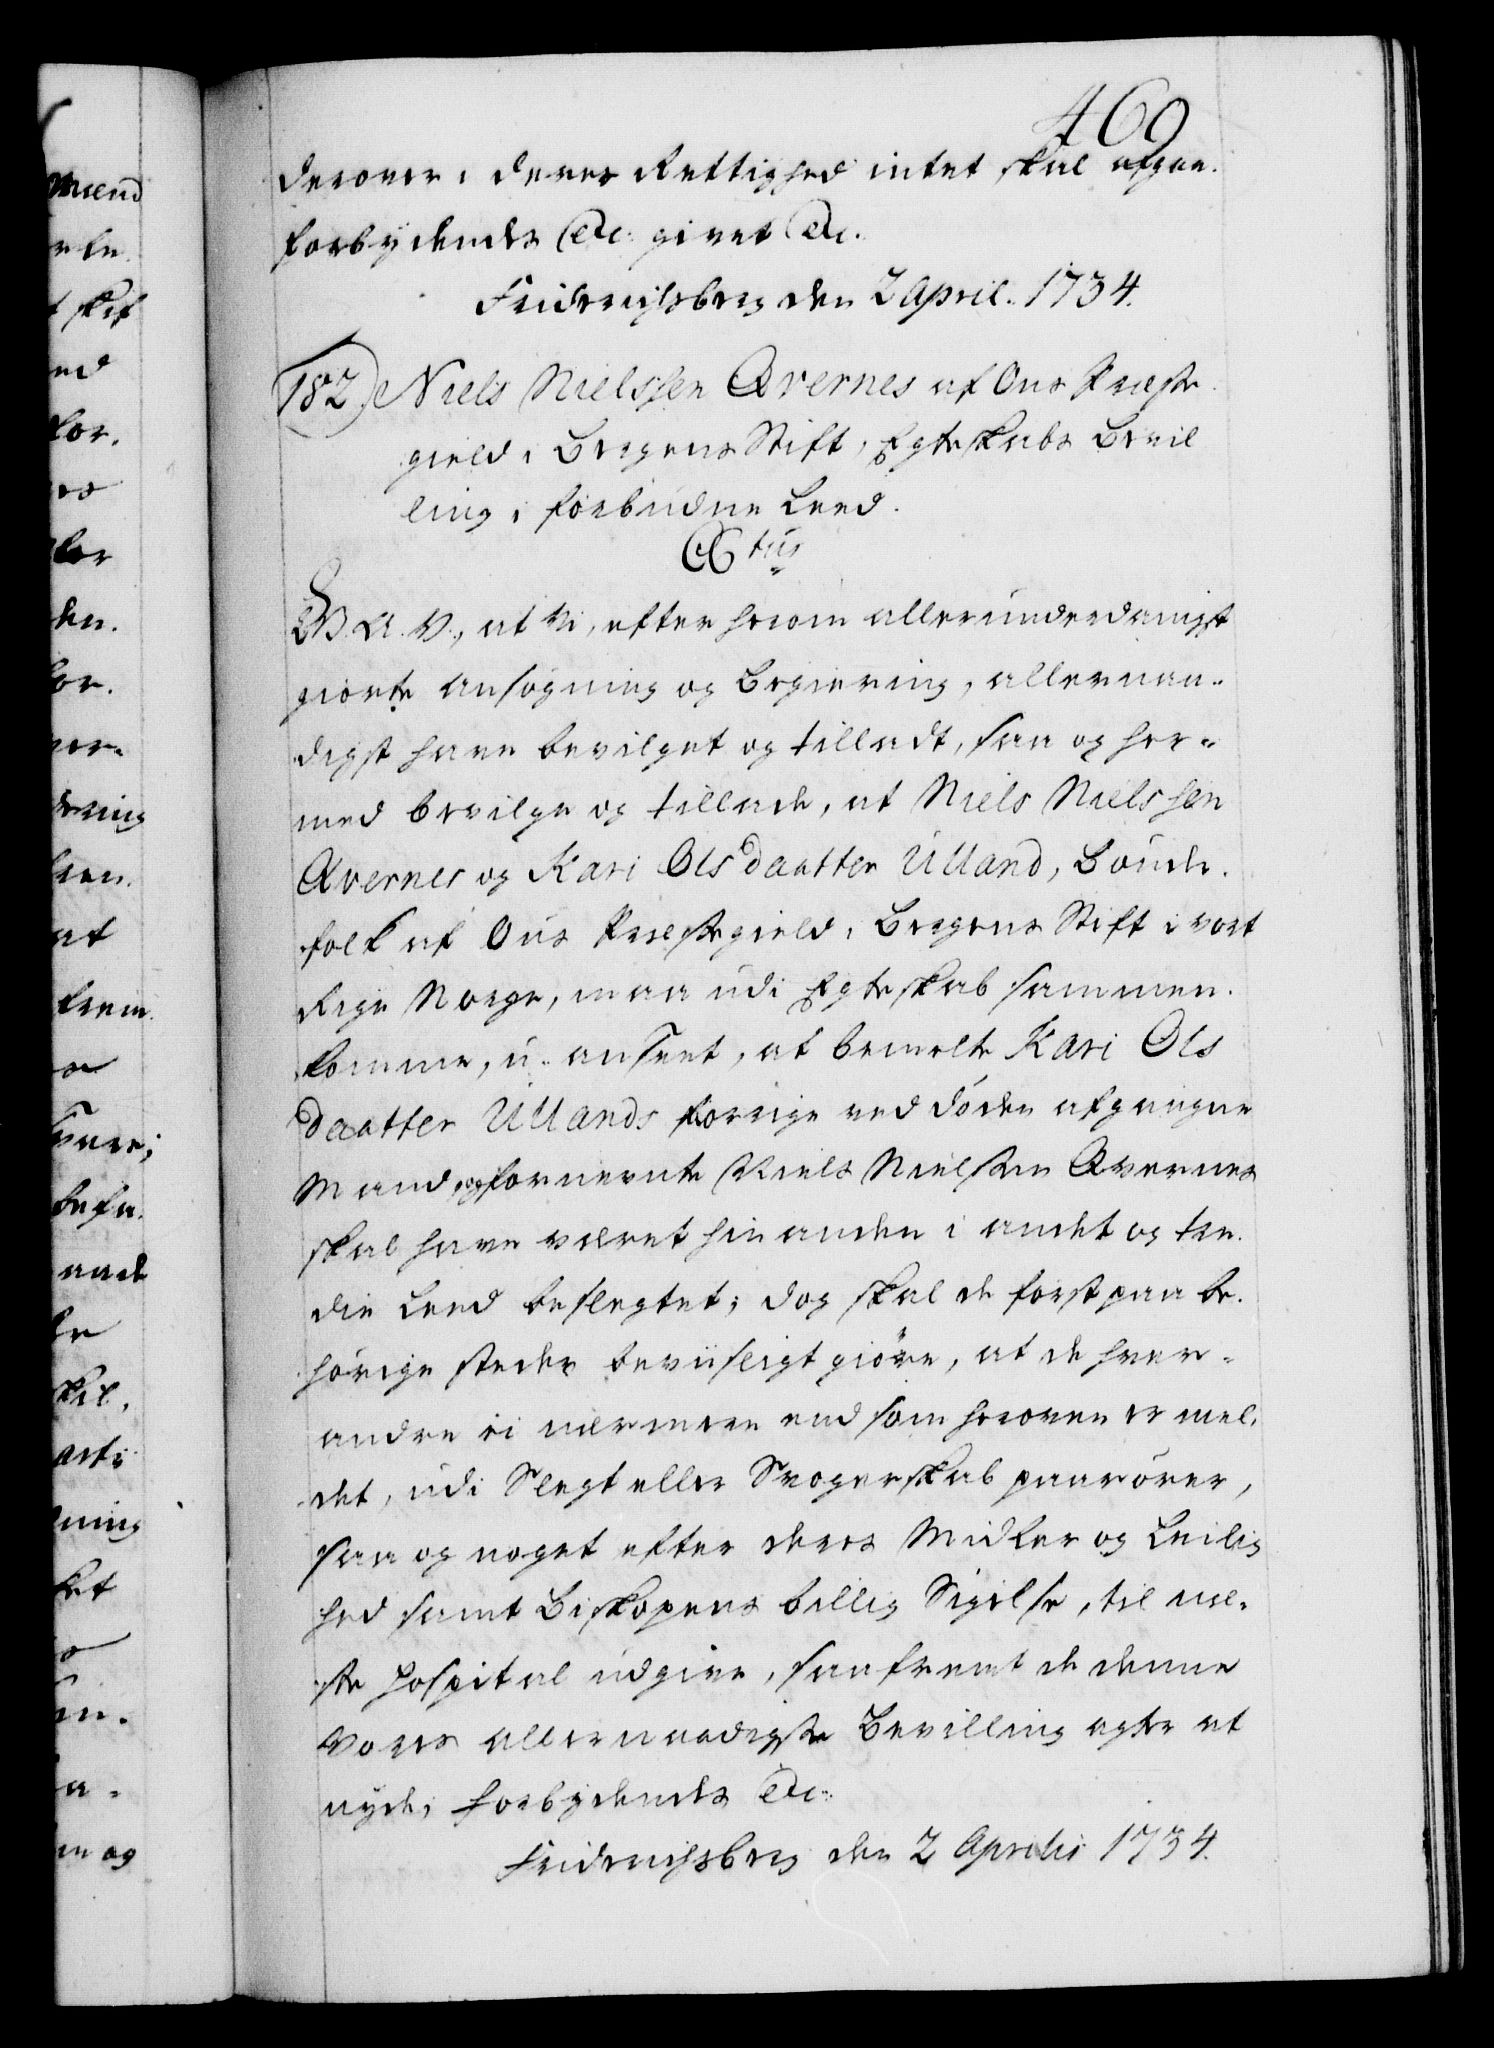 469
derover i deres Rettighed intet skal afgaae.
forbydendes &c: givet &c.
Friderichsberg den 2 April. 1734.
182) Niels Nielssen Qvernes af Ous Præste
gield i Bergens Stift, Egteskabs Bevil
ling i forbudne Leed.
C6tus
G. A. V., at Vi, efter herom allerunderdanigst
giorte Ansøgning og Begiering, allernaa-
digst have bevilget og tilladt, saa og her-
med bevilge og tillade, at Niels Nielssen
Qvernes og Kari Olsdaatter Ulland, Bønder-
folk af Ous Præstegield i Bergens Stift i vort
Rige Norge, maa udi Egteskab sammen-
komme, u-anseet, at bemelte Kari Ols
daatter Ullands forrige ved døden afgangne
Mand, og fornevnte Niels Nielssen Qvernes
skal have været hinanden i andet og tre-
die Leed beslegtet; dog skal de først paa be-
hörige steder beviisligt giöre, at de hver-
andre ei nærmere end som heroven er mel-
det, udi Slegt eller Svogerskab paarörer,
saa og noget efter deres Midler og Leilig
hed samt Biskopens billig Sigelse, til næ-
ste Hospital udgive, saafremt de denne
Vores allernaadigste Bevilling agter at
nyde, forbydendes &c:
Friderichsberg den 2 Aprilis 1734.